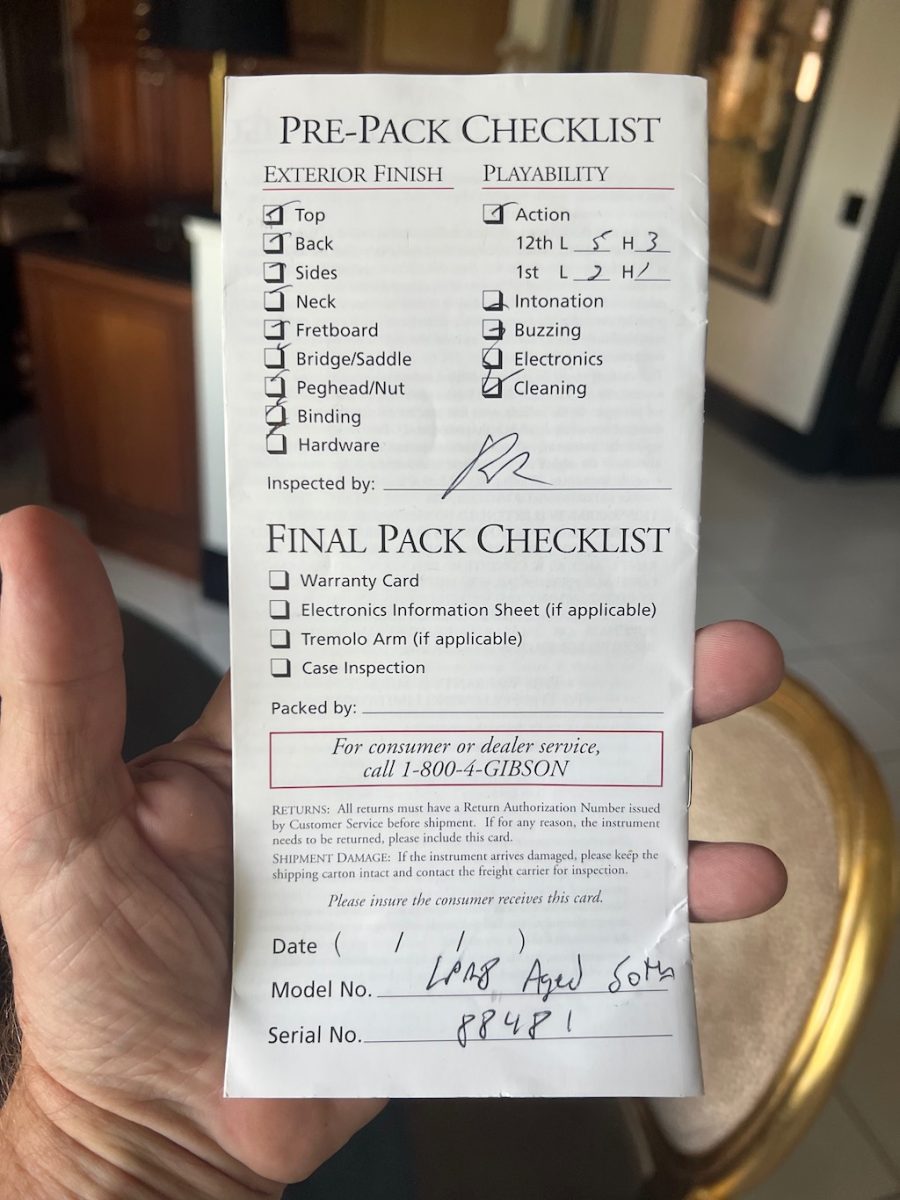 PRE-PACK CHECKLIST
EXTERIOR FINISH
Top
Back
Sides
Neck
Fretboard
Bridge/Saddle
Peghead/Nut
Binding
Hardware
PLAYABILITY
Action
12th L 5 H 3
1st L 2 H 1
Intonation
Buzzing
Electronics
Cleaning
Inspected by:
FINAL PACK CHECKLIST
Warranty Card
Electronics Information Sheet (if applicable)
Tremolo Arm (if applicable)
Case Inspection
Packed by:
For consumer or dealer service,
call 1-800-4-GIBSON
RETURNS: All returns must have a Return Authorization Number issued
by Customer Service before shipment. If for any reason, the instrument
needs to be returned, please include this card.
SHIPMENT DAMAGE: If the instrument arrives damaged, please keep the
shipping carton intact and contact the freight carrier for inspection.
Please insure the consumer receives this card.
Date ( / / )
Model No. Aged 50th
Serial No. 88481